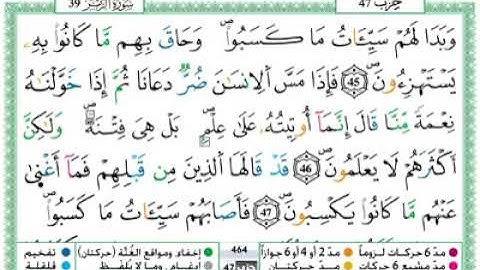 حزب 47 سورة الزمر 39
وَبَدَا لَهُمْ سَيِّـَٔاتُ مَا كَسَبُواْ وَحَاقَ بِهِم مَّا كَانُواْ بِهِۦ
يَسْتَهْزِءُونَ 45 فَإِذَا مَسَّ اَلِانسَٰنَ ضُرٌّ دَعَانَا ثُمَّ إِذَا خَوَّلْنَٰهُ
نِعْمَةً مِّنَّا قَالَ إِنَّمَآ أُوتِيتُهُۥ عَلَىٰ عِلْمٍ بَلْ هِىَ فِتْنَةٌ وَلَٰكِنَّ
أَكْثَرَهُمْ لَا يَعْلَمُونَ 46 قَدْ قَالَهَا اَلذِينَ مِن قَبْلِهِمْ فَمَآ أَغْنَىٰ
عَنْهُم مَّا كَانُواْ يَكْسِبُونَ 47 فَأَصَابَهُمْ سَيِّـَٔاتُ مَا كَسَبُواْ
مدّ 6 حركات لزوماً مدّ 2 أو 4 أو 6 جوازاً 464 إخفاء، ومواقع الغُنَّة (حركتان) تفخيم
مدّ مشبع 6 حركات مدّ حركتان إدغام، وما لا يُلفظ قلقلة